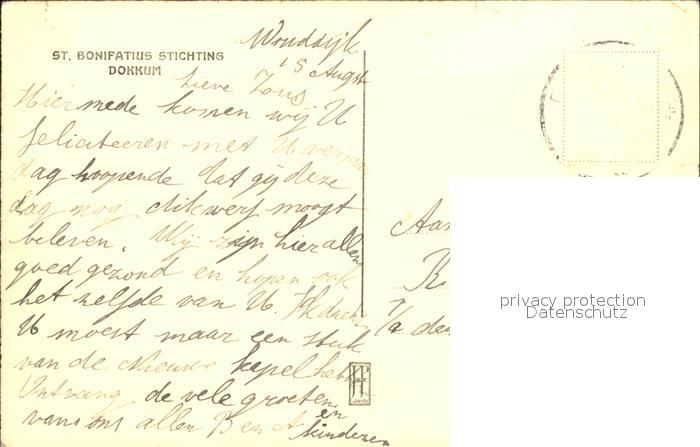 ST. BONIFATIUS STICHTING
DOKKUM
Woudsijk
15 Augst
Lieve Zus
Hiermede komen wij U
feliciteeren met U verjaar
dag hoopende dat gij deze
dag nog dikwerf moogt
beleven. Wij zijn hier allen
goed gezond en hopen ook
het zelfde van U. Ik dacht
U moest maar een stuk
van de nieuwe kapel
Ontvang de vele groeten
van ons allen B en A en
kinderen
Aan
T/a den
privacy protection
Datenschutz